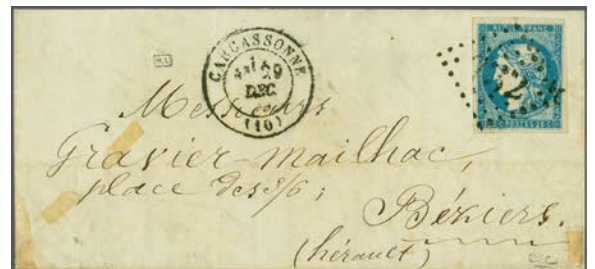 CARCASSONNE
29
DEC.
(10)
Messieurs
Gravier-Mailhac,
place des 3/6;
Béziers.
(hérault)